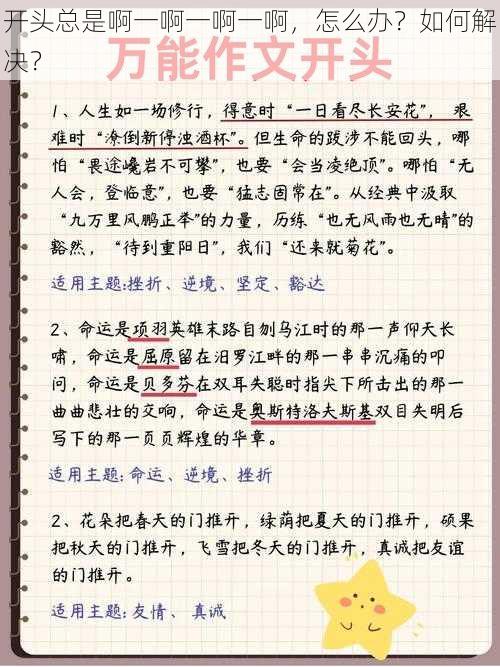 开头总是啊一啊一啊一啊，怎么办？如何解
决？
万能作文开头
1、人生如一场修行，得意时“一日看尽长安花”，艰
难时“潦倒新停浊酒杯”。但生命的跋涉不能回头，哪
怕“畏途巉岩不可攀”，也要“会当凌绝顶”。哪怕“无
人会，登临意”，也要“猛志固常在”。从经典中汲取
“九万里风鹏正举”的力量，历练“也无风雨也无晴”的
豁然，“待到重阳日”，我们“还来就菊花”。
适用主题:挫折、逆境、坚定、豁达
2、命运是项羽英雄末路自刎乌江时的那一声仰天长
啸，命运是屈原留在汨罗江畔的那一串串沉痛的叩
问，命运是贝多芬在双耳失聪时指尖下所击出的那一
曲曲悲壮的交响，命运是奥斯特洛夫斯基双目失明后
写下的那一页页辉煌的华章。
适用主题:命运、逆境、挫折
2、花朵把春天的门推开，绿荫把夏天的门推开，硕果
把秋天的门推开，飞雪把冬天的门推开，真诚把友谊
的门推开。
适用主题:友情、真诚